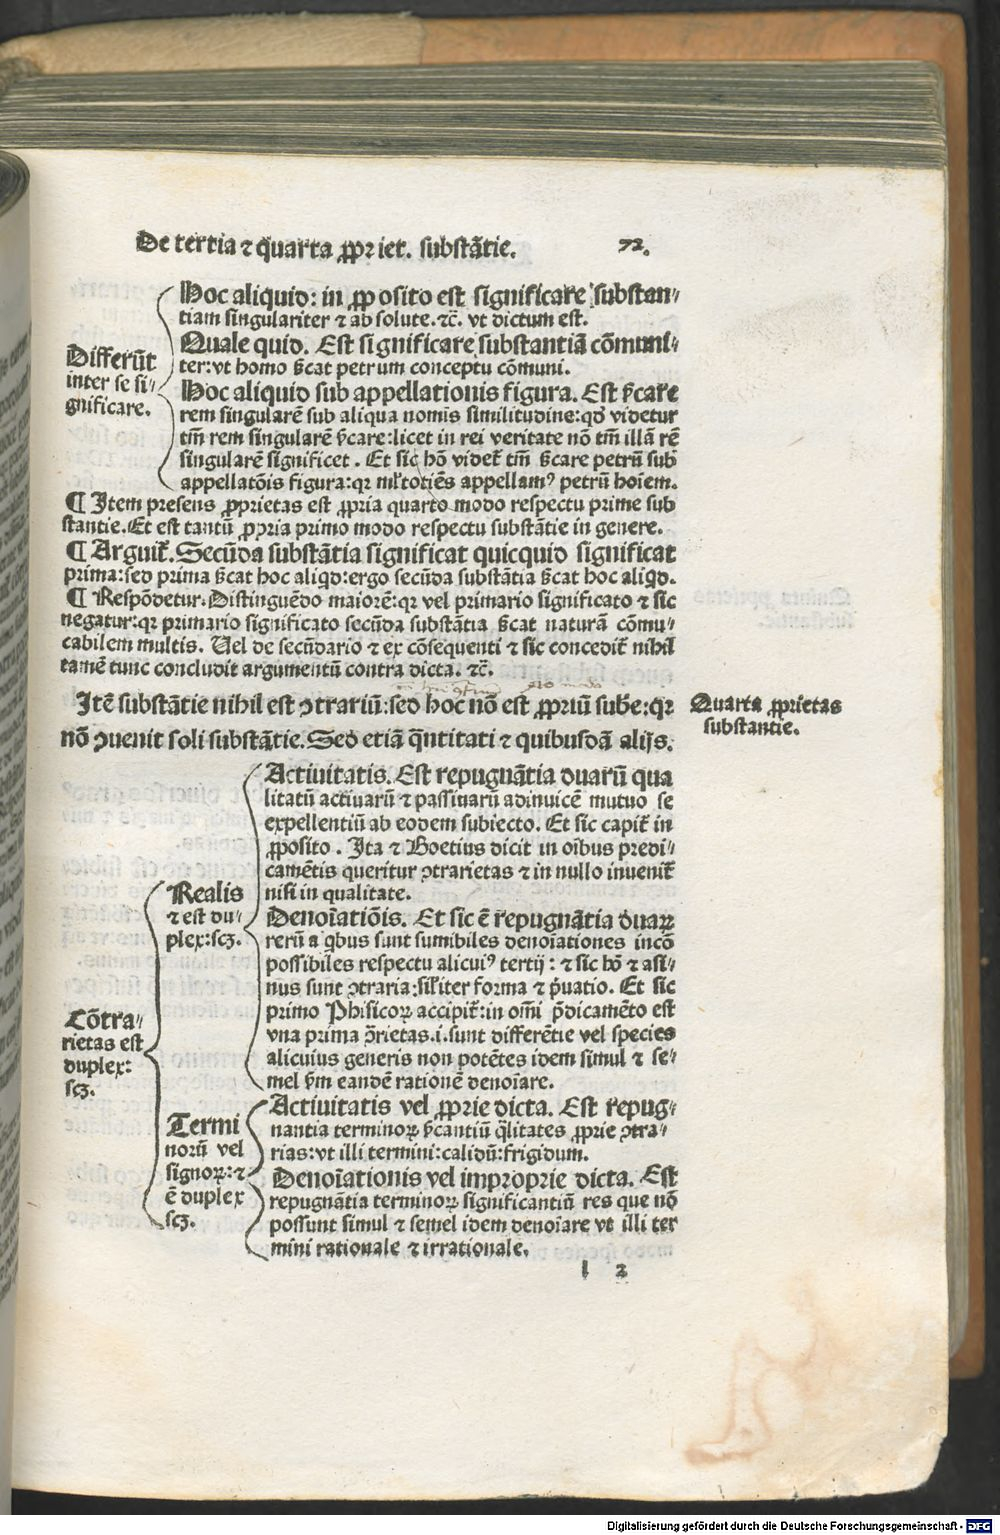 De tertia ⁊ q̄uarta ꝓpriet. substātie.
72.
Hoc aliquid: in ꝓposito est significare substan⸗
tiam singulariter ⁊ absolute.⁊c̄. vt dictum est.
Quale quid. Est significare substantiā cōmuni⸗
ter:vt homo s̄cat petrum conceptu cōmuni.
Hoc aliquid sub appellationis figura. Est s̄care
rem singularē sub aliqua nomis similitudine:qđ videtur
tm̄ rem singularē s̄care:licet in rei veritate nō tm̄ illā rē
singularē significet. Et sic hō videt᷑ tm̄ s̄care petrū sub
appellatōis figura:qꝛ ml̓totiēs appellamꝰ petrū hoiem.
Differūt
inter se si⸗
gnificare.
¶ Item presens ꝓprietas est ꝓpria quarto modo respectu prime sub
stantie.Et est tantū ꝓpria primo modo respectu substātie in genere.
¶ Arguit᷑. Secūda substātia significat quicquid significat
prima:sed prima s̄cat hoc aliqd:ergo secūda substātia s̄cat hoc aliqd.
¶ Respōdetur. Distinguēdo maiorē:qꝛ vel primario significato ⁊ sic
negatur:qꝛ primario significato secūda substātia s̄cat naturā cōmu⸗
cabilem multis. Uel de secūdario ⁊ ex cōsequenti ⁊ sic concedit᷑ nihil
tamē tunc concludit argumentū contra dicta. ⁊c̄.
Itē substātie nihil est ꝯtrariū:sed hoc nō est ꝓpriū sube:qꝛ
nō ꝯuenit soli substātie. Sed etiā q̄ntitati ⁊ quibusdā alijs.
Quarta ꝓprietas
substantie.
Cōtra⸗
rietas est
duplex:
scꝫ.
Realis
⁊ est du⸗
plex:scꝫ.
Actiuitatis. Est repugnātia duarū qua
litatū actiuarū ⁊ passiuarū adinuicē mutuo se
expellentiū ab eodem subiecto. Et sic capit᷑ in
ꝓposito. Ita ⁊ Boetius dicit in oībus predi⸗
camētis queritur ꝯtrarietas ⁊ in nullo inuenit᷑
nisi in qualitate.
Denoīatiōis. Et sic ē repugnātia duaꝝ
rerū a qbus sunt sumibiles denoīationes incō
possibiles respectu alicuiꝰ tertij: ⁊ sic hō ⁊ asi⸗
nus sunt ꝯtraria:sil̓iter forma ⁊ p̄uatio. Et sic
primo Phisicoꝝ accipit᷑:in om̄i p̄dicamēto est
vna prima ꝯ̄rietas.i.sunt differētie vel species
alicuius generis non potētes idem simul ⁊ se⸗
mel s̄m eandē rationē denoīare.
Termi
norū vel
signoꝝ:⁊
ē duplex
scꝫ.
Actiuitatis vel ꝓprie dicta. Est repug⸗
nantia terminoꝝ s̄cantiū q̄litates ꝓprie ꝯtra⸗
rias:vt illi termini:calidū:frigidum.
Denoīationis vel improprie dicta. Est
repugnātia terminoꝝ significantiū res que nō
possunt simul ⁊ semel idem denoīare vt illi ter
mini rationale ⁊ irrationale.
l 2
Digitalisierung gefördert durch die Deutsche Forschungsgemeinschaft - DFG